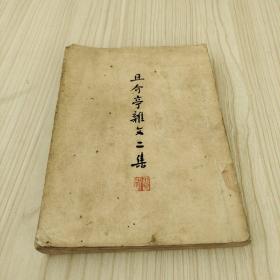 且介亭雜文二集